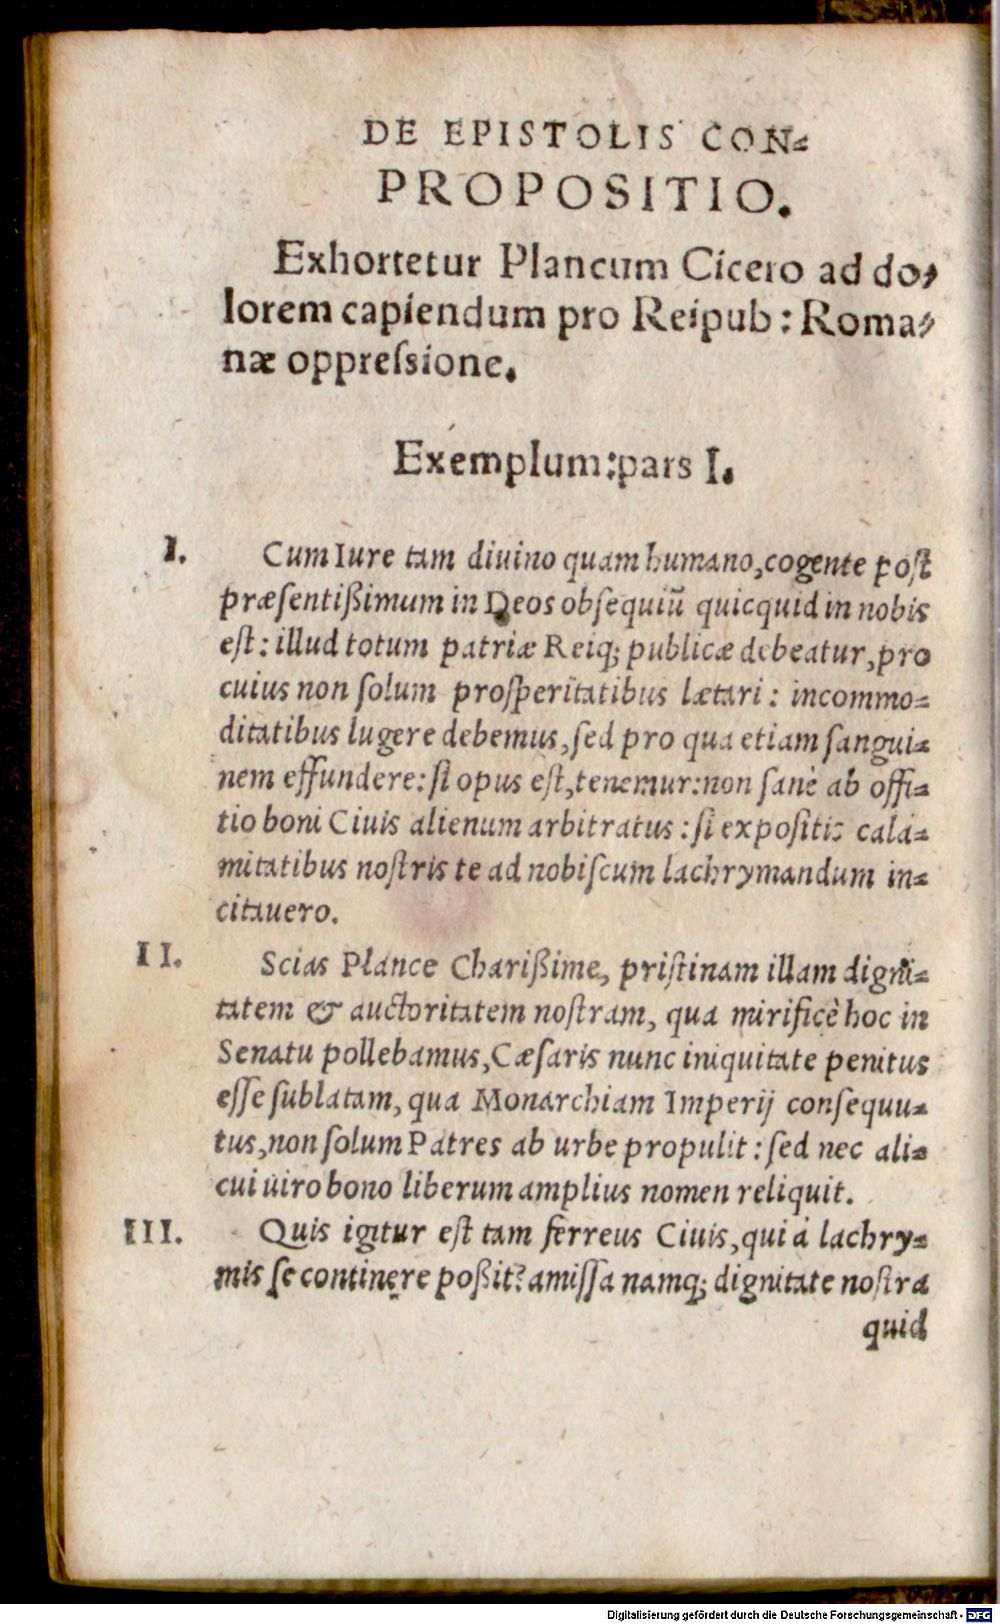 DE EPISTOLIS CON⸗
PROPOSITIO.
Exhortetur Plancum Cicero ad do⸗
lorem capiendum pro Reipub: Roma⸗
næ oppreſsione.
Exemplum:pars I.
I. Cum Iure tam diuino quam humano,cogente post
præſentißimum in Deos obſequiū quicquid in nobis
eſt: illud totum patriæ Reiq; publicæ debeatur,pro
cuius non ſolum proſperitatibus lætari: incommo⸗
ditatibus lugere debemus,ſed pro qua etiam ſangui⸗
nem effundere: ſi opus eſt,tenemur:non ſanè ab offi⸗
tio boni Ciuis alienum arbitratus: ſi expoſitis cala⸗
mitatibus noſtris te ad nobiſcum lachrymandum in⸗
citauero.
II. Scias Plance Charißime, priſtinam illam digni⸗
tatem & auctoritatem noſtram, qua mirificè hoc in
Senatu pollebamus,Cæſaris nunc iniquitate penitus
eſſe ſublatam, qua Monarchiam Imperij conſequu⸗
tus,non ſolum Patres ab urbe propulit: ſed nec ali⸗
cui uiro bono liberum amplius nomen reliquit.
III. Quis igitur eſt tam ferreus Ciuis,qui à lachry⸗
mis ſe continere poßit? amiſſa namq; dignitate noſtra
quid
Digitalisierung gefördert durch die Deutsche Forschungsgemeinschaft - DFG